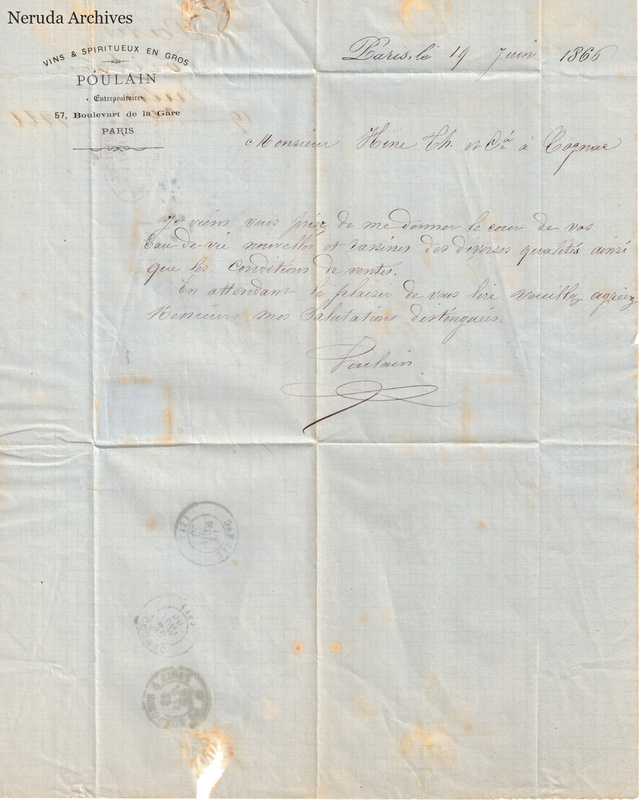 Neruda Archives
VINS & SPIRITUEUX EN GROS
POULAIN
Entrepositaire
57, Boulevart de la Gare
PARIS
Paris, le 19 Juin 1866
Monsieur Hine Th. et Cie à Cognac
Je viens vous priez de me donner le cour de vos
Eau-de-vie nouvelles et rassises des diverses qualités ainsi
que les conditions de ventes.
En attendant le plaisir de vous lire veuillez agréez
Messieurs mes Salutations distinguées.
Poulain